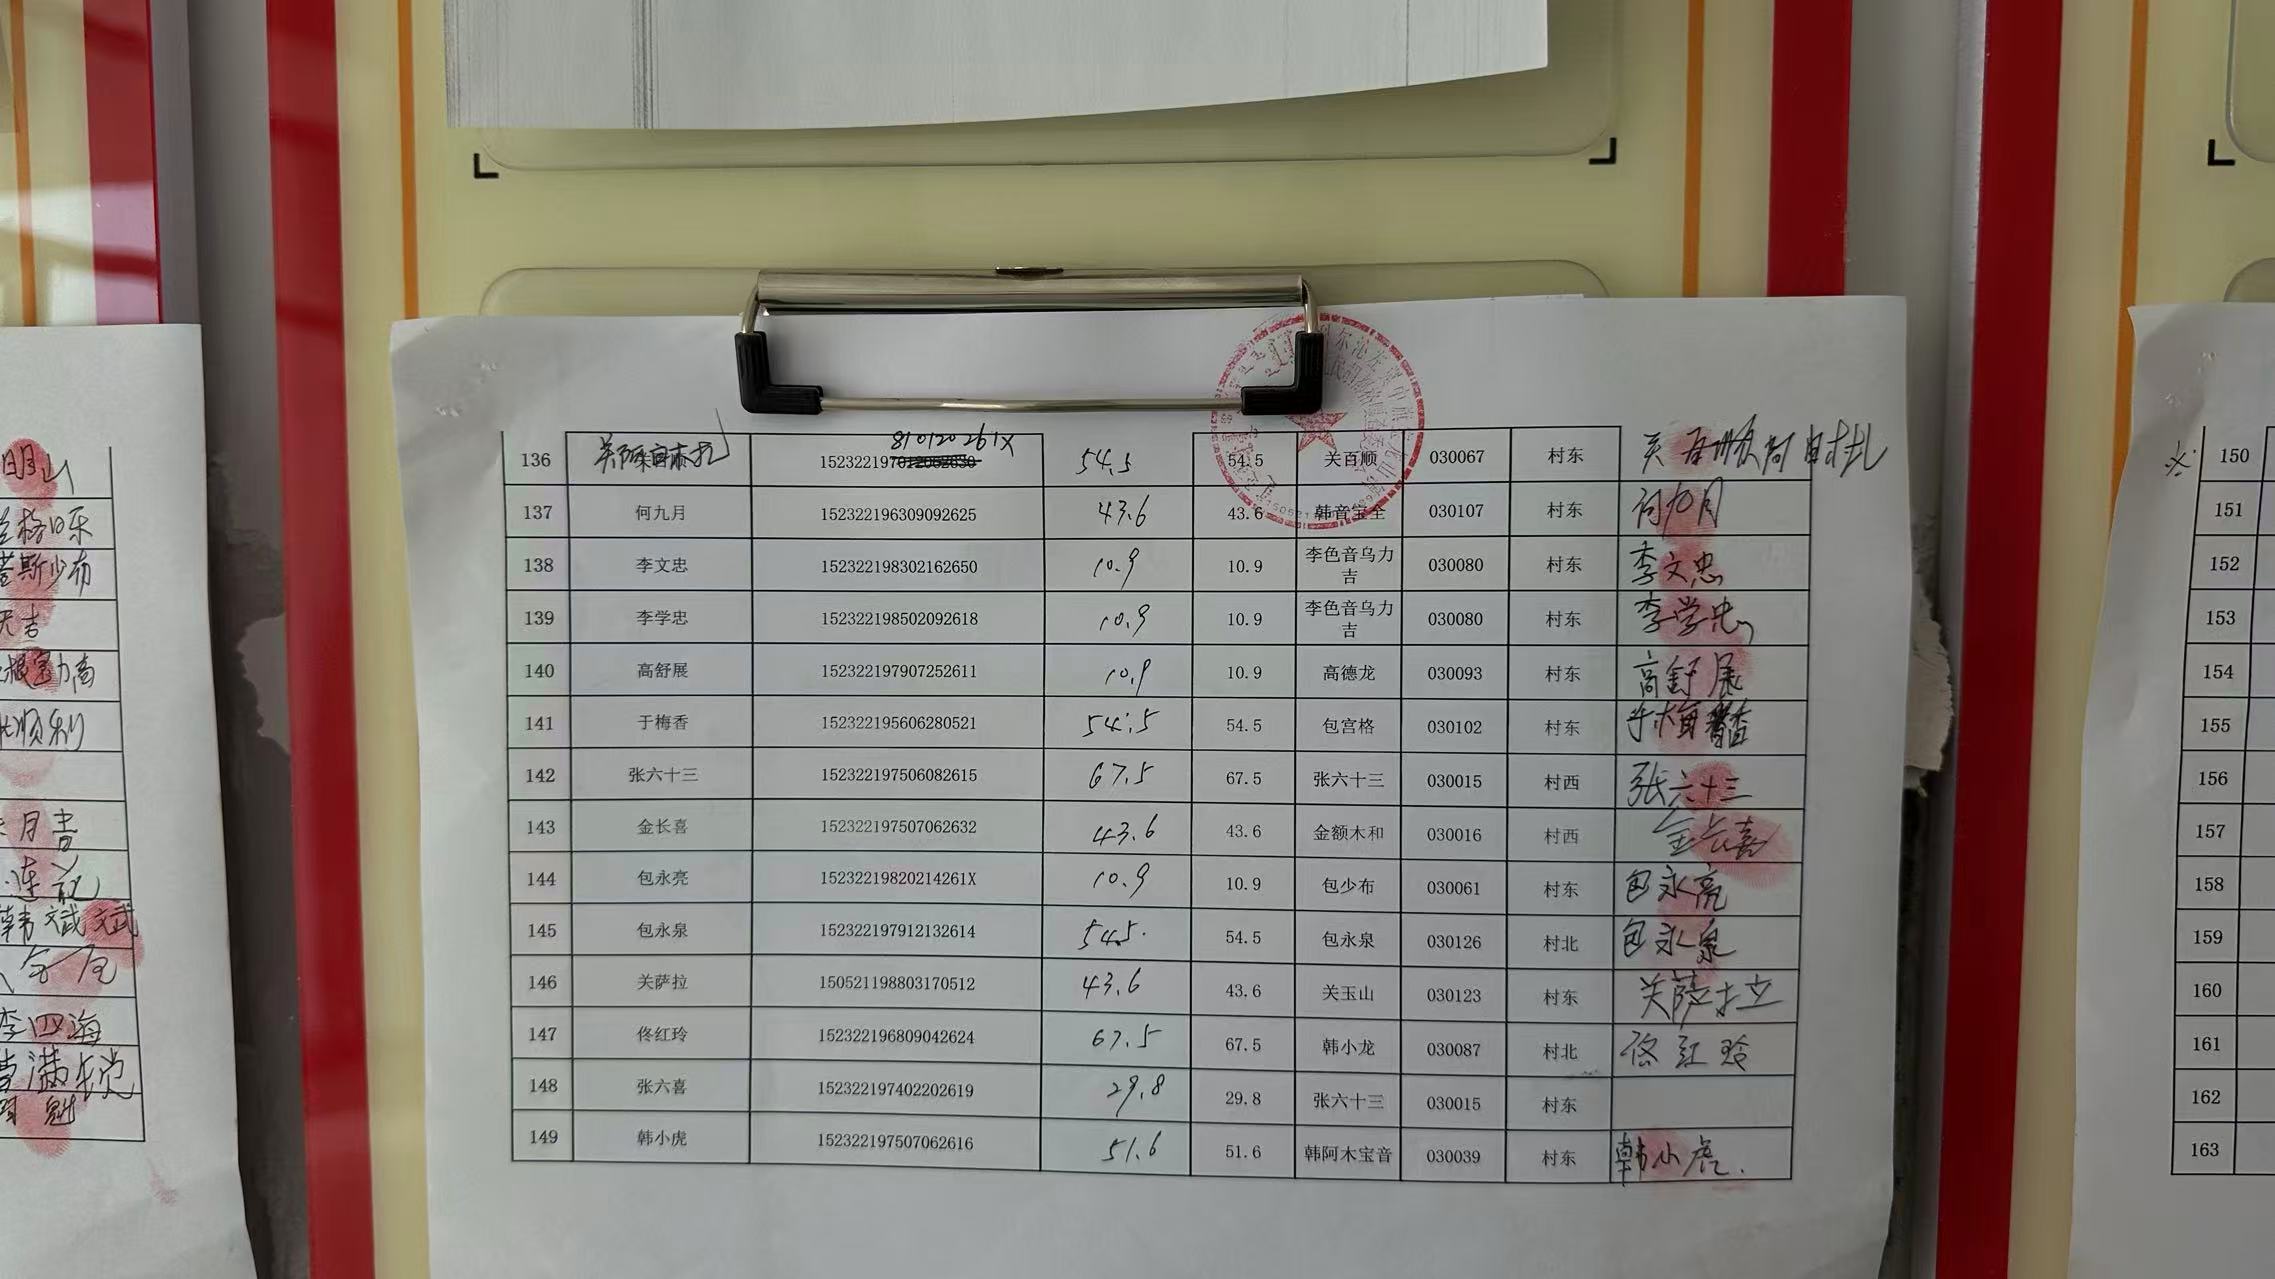 136 152322197 810120261X 54.5 54.5 关百顺 030067 村东
137 何九月 152322196309092625 43.6 43.6 韩音宝全 030107 村东 何九月
138 李文忠 152322198302162650 10.9 10.9 李色音乌力吉 030080 村东 李文忠
139 李学忠 152322198502092618 10.9 10.9 李色音乌力吉 030080 村东 李学忠
140 高舒展 152322197907252611 10.9 10.9 高德龙 030093 村东 高舒展
141 于梅香 152322195606280521 54.5 54.5 包宫格 030102 村东 于梅香
142 张六十三 152322197506082615 67.5 67.5 张六十三 030015 村西 张六十三
143 金长喜 152322197507062632 43.6 43.6 金额木和 030016 村西
144 包永亮 15232219820214261X 10.9 10.9 包少布 030061 村东 包永亮
145 包永泉 152322197912132614 54.5 54.5 包永泉 030126 村北 包永泉
146 关萨拉 150521198803170512 43.6 43.6 关玉山 030123 村东 关萨拉
147 佟红玲 152322196809042624 67.5 67.5 韩小龙 030087 村北 佟红玲
148 张六喜 152322197402202619 29.8 29.8 张六十三 030015 村东
149 韩小虎 152322197507062616 51.6 51.6 韩阿木宝音 030039 村东 韩小虎
李四海
150
151
152
153
154
155
156
157
158
159
160
161
162
163